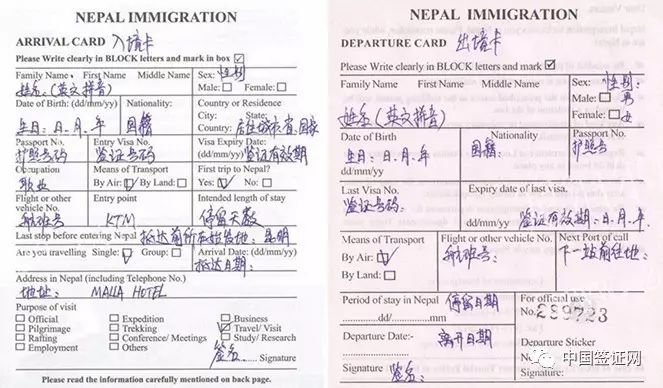 NEPAL IMMIGRATION
ARRIVAL CARD 入境卡
Please Write clearly in BLOCK letters and mark in box ☑
Family Name, First Name Middle Name
姓名:(英文拼音)
Sex: 性别
Male: ☐ Female: ☐
Date of Birth: (dd/mm/yy)
生日:日.月.年
Nationality:
国籍
Country or Residence
City: State:
Country: 居住城市.省.国家
Passport No.
护照号码
Entry Visa No.
签证号码
Visa Expiry Date:
(dd/mm/yy) 签证有效期
Occupation
职业
Means of Transport
By Air: ☑ By Land: ☐
First trip to Nepal?
Yes: ☑ No: ☐
Flight or other
vehicle No.
航班号
Entry point
KTM
Intended length of stay
停留天数
Last stop before entering Nepal 抵达前所在始发地:昆明
Are you travelling Single: ☑ Group: ☐
Arrival Date: (dd/mm/yy)
抵达日期:
Address in Nepal (including Telephone No.)
地址: MALLA HOTEL
Purpose of visit
☐ Official ☐ Expedition ☐ Business
☐ Pilgrimage ☐ Trekking ☑ Travel/ Visit
☐ Rafting ☐ Conference/ Meetings ☐ Study/ Research
☐ Employment ☐ Others
签名 Signature
Please read the information carefully mentioned on back page.
NEPAL IMMIGRATION
DEPARTURE CARD 出境卡
Please Write clearly in BLOCK letters and mark ☑
Family Name First Name Middle Name
姓名(英文拼音)
Sex: 性别:
Male: ☐ 男
Female: ☐ 女
Date of Birth
生日:日.月.年
Nationality
国籍:
Passport No.
护照号
Last Visa No.
签证号码:
Expiry date of last visa.
dd/mm/yy 签证有效期:日.月.年
Means of Transport
By Air: ☑
By Land: ☐
Flight or other vehicle No.
航班号:
Next Port of call
下一站前往地:
Period of stay in Nepal 停留日期
dd/ mm
Departure Date:- 离开日期
Signature 签名:
For official use
No. 289723
Departure Sticker
No.
中国签证网